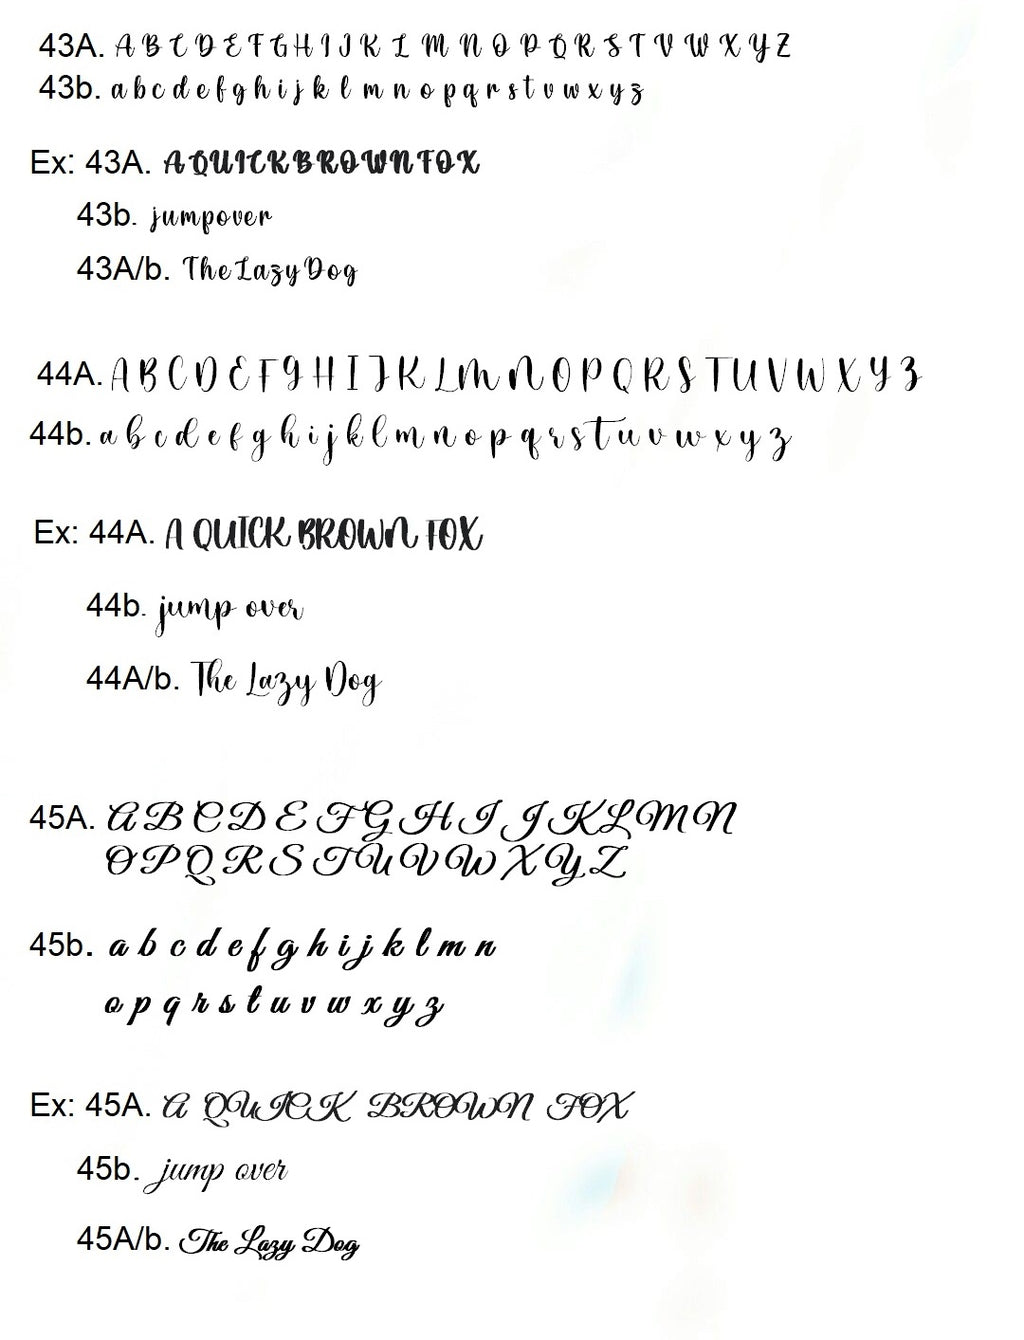 43A. A B C D E F G H I J K L M N O P Q R S T V W X Y Z
43b. a b c d e f g h i j k l m n o p q r s t v w x y z
Ex: 43A. A QUICK BROWN FOX
43b. jumpover
43A/b. The Lazy Dog
44A. A B C D E F G H I J K L M N O P Q R S T U V W X Y Z
44b. a b c d e f g h i j k l m n o p q r s t u v w x y z
Ex: 44A. A QUICK BROWN FOX
44b. jump over
44A/b. The Lazy Dog
45A. A B C D E F G H I J K L M N
O P Q R S T U V W X Y Z
45b. a b c d e f g h i j k l m n
o p q r s t u v w x y z
Ex: 45A. A QUICK BROWN FOX
45b. jump over
45A/b. The Lazy Dog